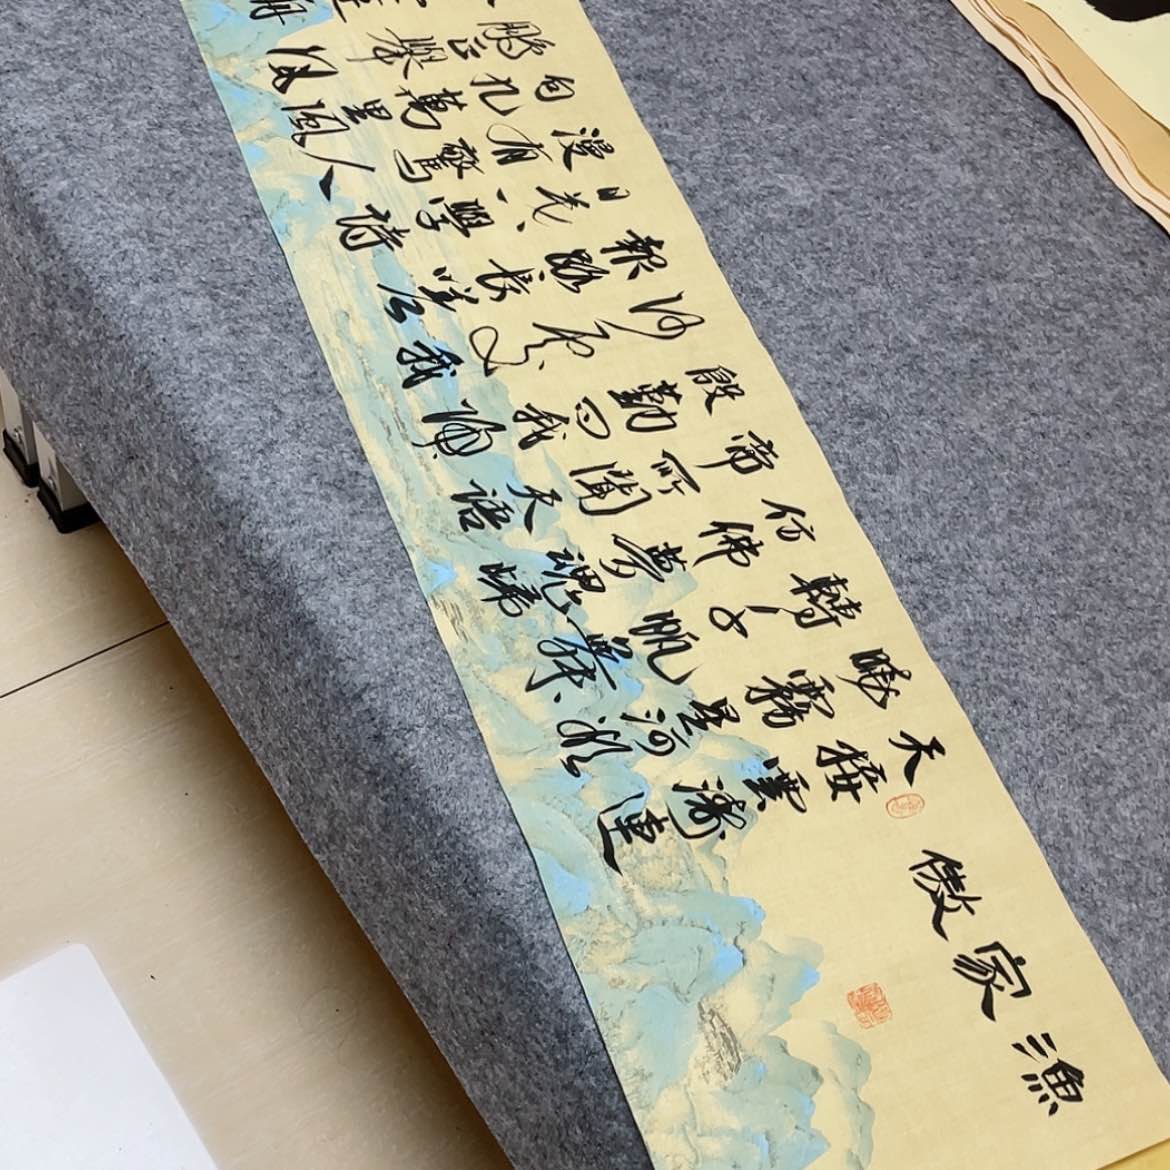 漁家傲
天接雲濤連
曉霧星河欲
轉千帆舞
仿佛夢魂歸
帝所聞天語
殷勤問我歸
何處我
報路長嗟
日暮學詩
漫有驚人
句九萬里風
鵬正舉風
舟